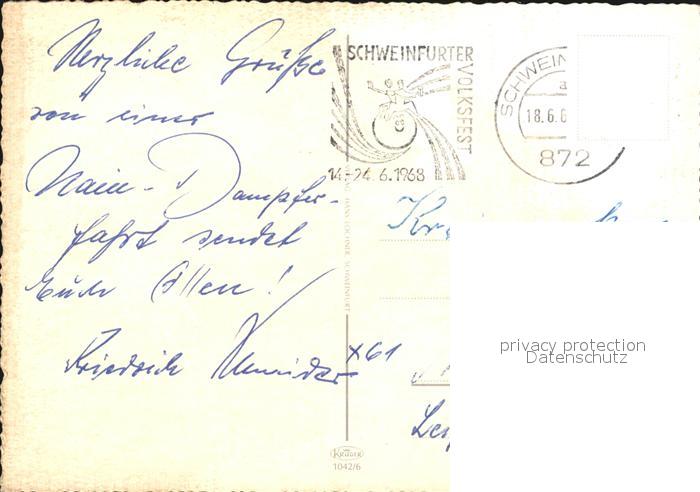 Herzliche Grüße
von einer
Main-Dampfer-
fahrt sendet
Euch Allen!
Friedrich
x61
SCHWEINFURTER
VOLKSFEST
14.-24.6.1968
SCHWEIN
18.6.6
872
KRÜGER
1042/6
privacy protection
Datenschutz